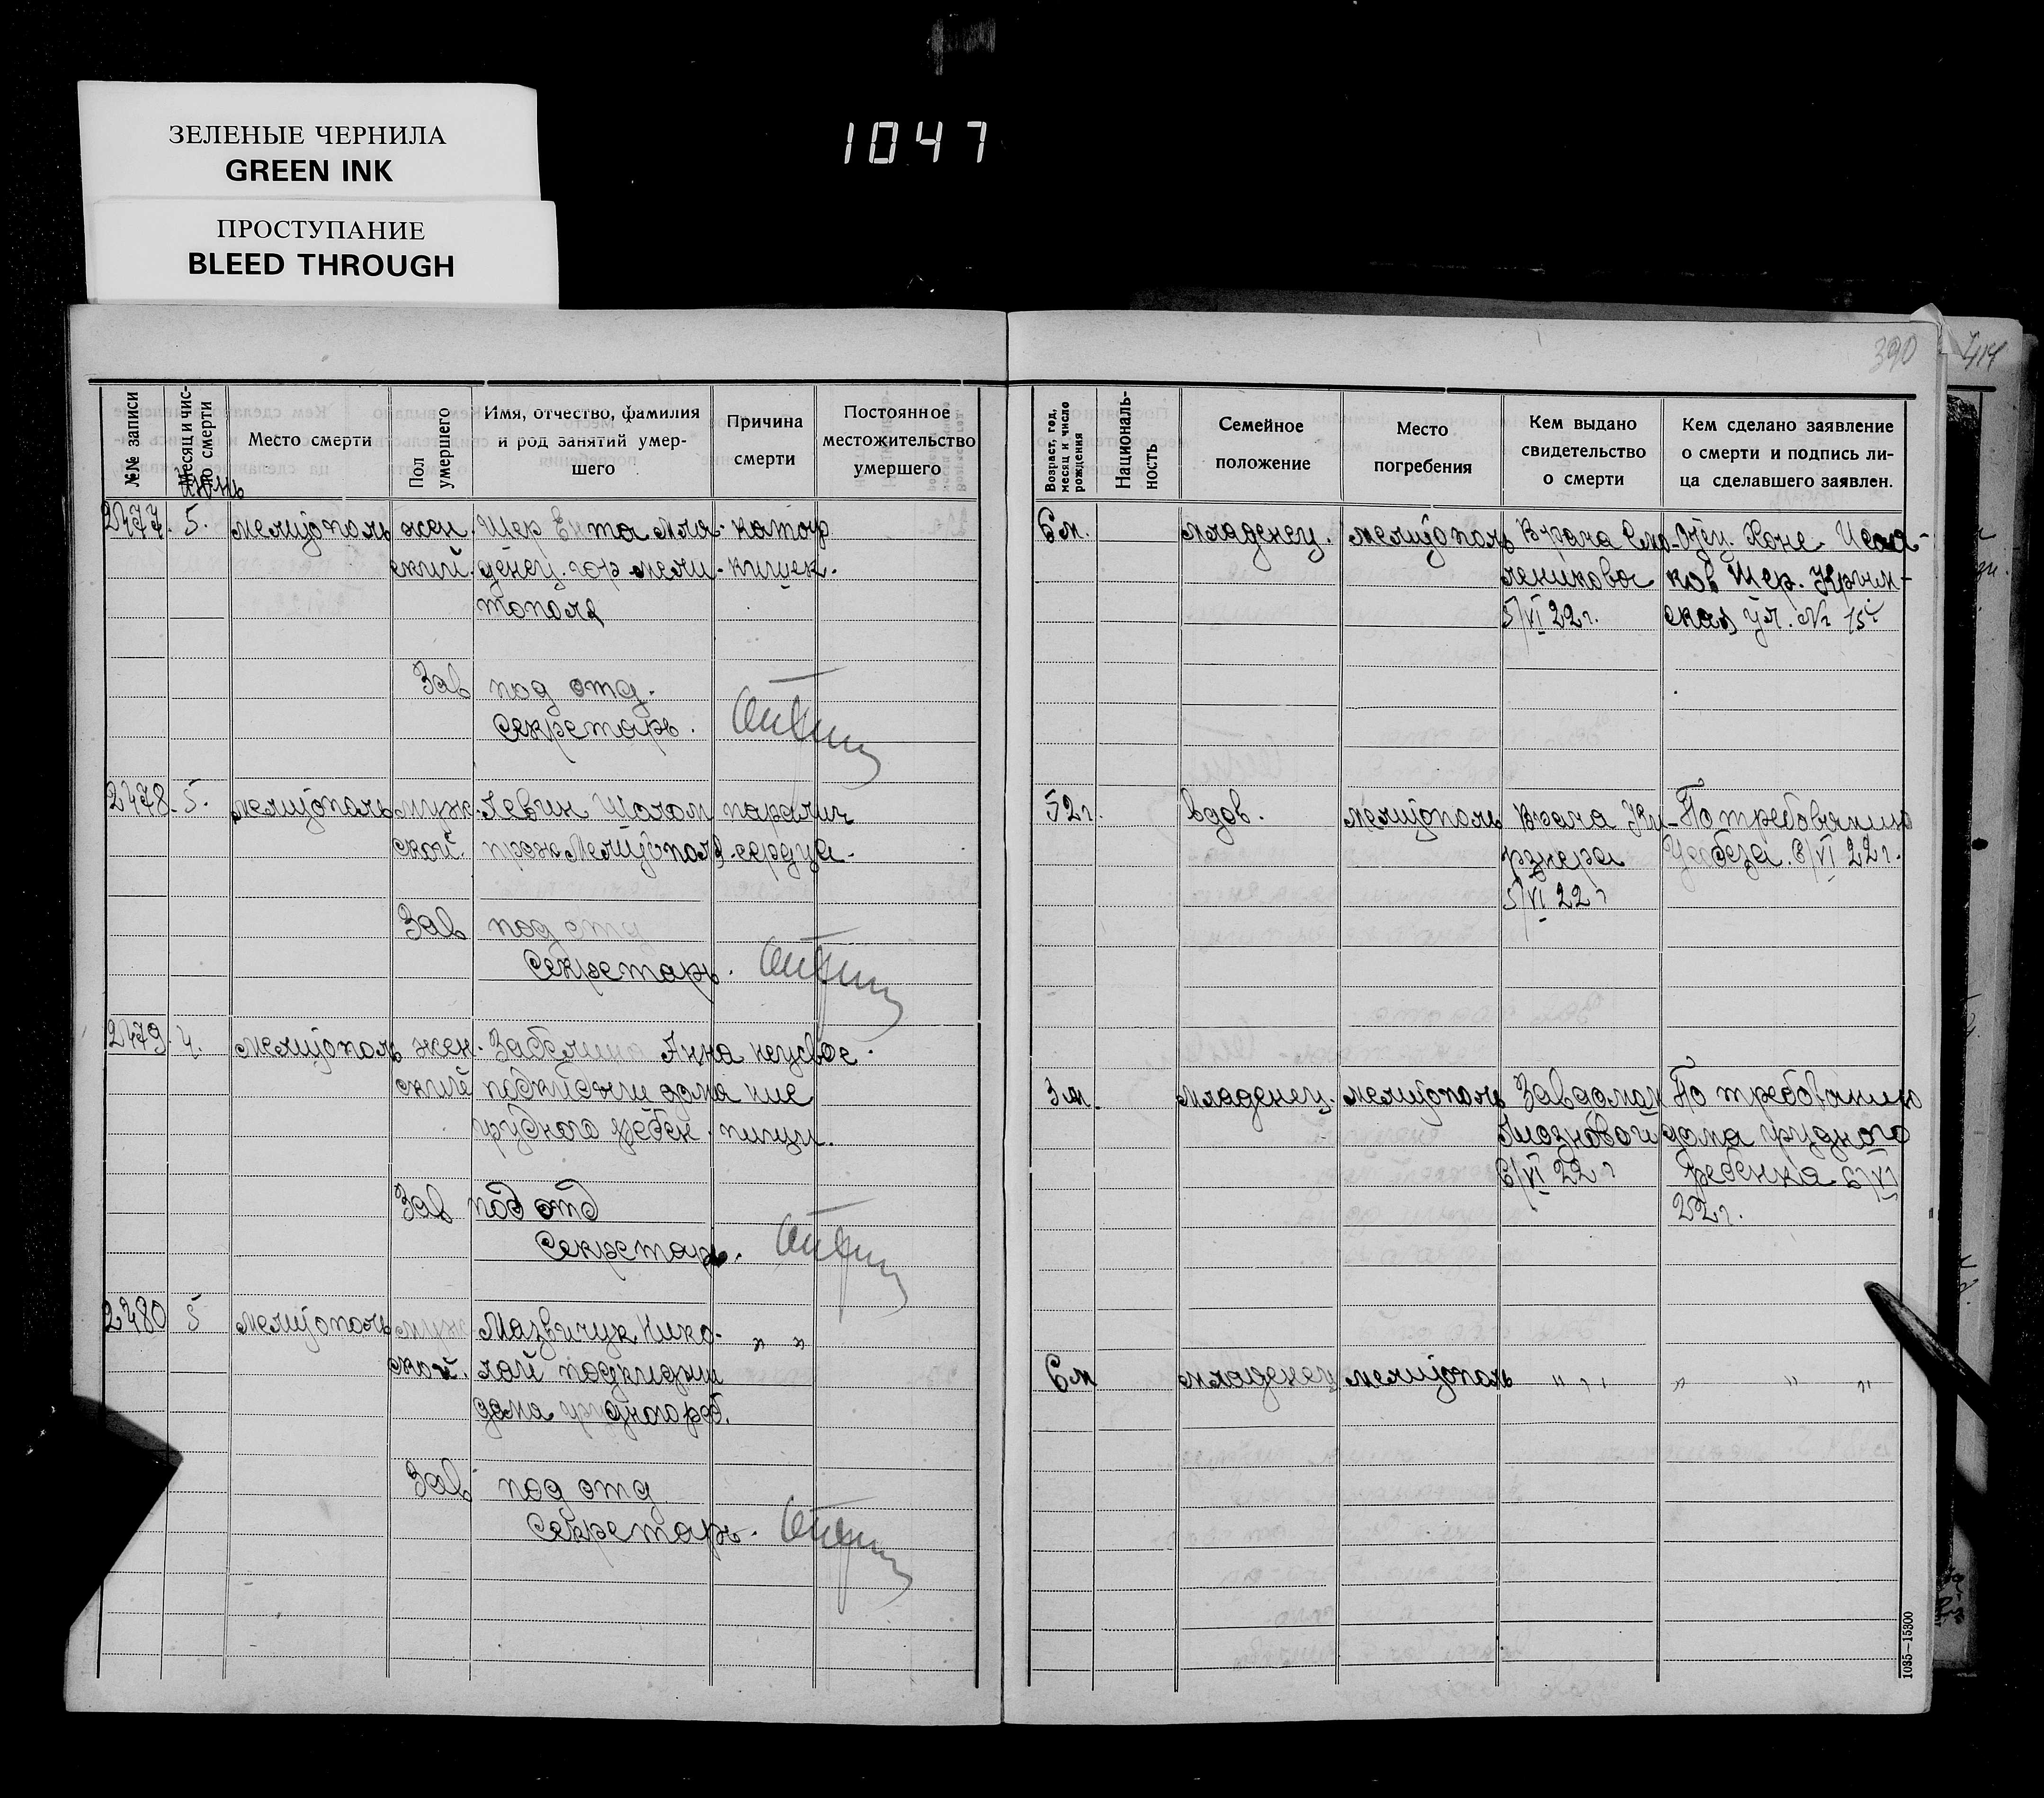 ЗЕЛЕНЫЕ ЧЕРНИЛА
GREEN INK
ПРОСТУПАНИЕ
BLEED THROUGH
1047
390
414
№№ записи
Месяц и число смерти
Место смерти
Пол умершего
Имя, отчество, фамилия
и род занятий умер-
шего
Причина
смерти
Постоянное
местожительство
умершего
Возраст, год, месяц и число рождения
Националь-
ность
Семейное
положение
Место
погребения
Кем выдано
свидетельство
о смерти
Кем сделано заявление
о смерти и подпись ли-
ца сделавшего заявлен.
июнь
2477. 5. мелитополь жен- Шер Ента мла- катар
ский. денец. гор. мели- кишек.
тополя
6 м. младенец. мелитополь Врача
5/VI 22 г.
Отец. Хоне
ков Шер. Крым-
ская ул. №
Зав под отд.
Секретарь.
2478. 5. мелитополь муж- Левин Шолом паралич
ской. граж Мелитополя сердца.
52 г. вдов. мелитополь Врача Ки-
рзнера
5/VI 22 г
По требованию
6/VI 22 г.
Зав под отд
Секретарь.
2479. 4. мелитополь жен- Забелина Анна неусвое-
ский подкидыш дома ние
грудного ребен. пищи.
3 м. младенец. мелитополь Зав домом
6/VI 22 г
По требованию
дома грудного
ребенка 6/VI
22 г.
Зав под отд
Секретарь.
2480 5 мелитополь муж- Мазвичук Нико- " "
ской. лай подкидыш
дома грудного реб.
6 м младенец мелитополь " " " " "
Зав под отд
Секретарь.
1035—15300